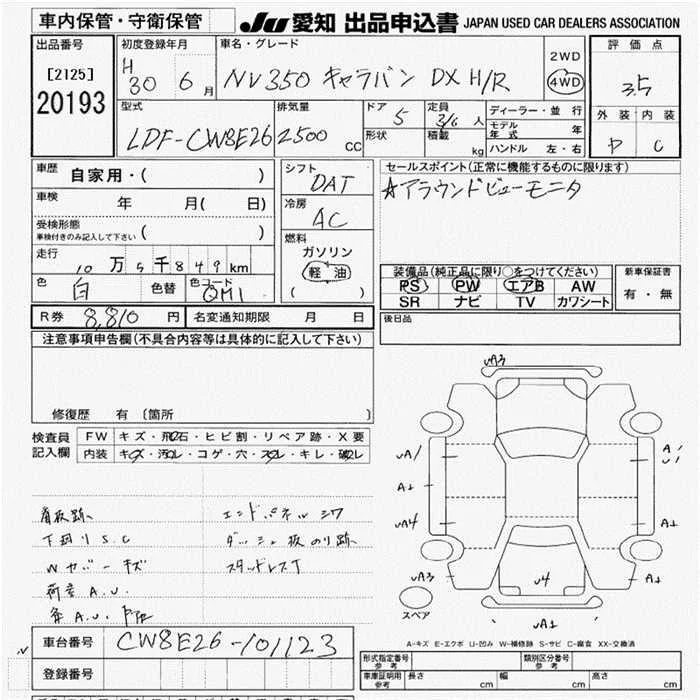 車内保管・守衛保管
JU 愛知 出品申込書 JAPAN USED CAR DEALERS ASSOCIATION
出品番号
[2125]
20193
初度登録年月
H 30 6 月
車名・グレード
NV350 キャラバン DX H/R
2WD
4WD
評価点
3.5
外装 内装
C
型式
LDF-CW8E26
排気量
2500 CC
ドア
5
形状
定員
3/6 人
積載 kg
ディーラー・並行
モデル年式 年
ハンドル 左・右
車歴
自家用・( )
車検
年 月( 日)
受検形態
車検付きのみ記入して下さい ( )
走行
10 万 5 千 849 km
色
白
色替
色コード
QM1
シフト
DAT
冷房
AC
燃料
ガソリン
軽油
( )
セールスポイント(正常に機能するものに限ります)
☆アラウンドビューモニタ
装備品(純正品に限り○をつけてください)
PS PW エアB AW
SR ナビ TV カワシート
新車保証書
有・無
R券 8,810 円
名変通知期限 月 日
後日品
注意事項申告欄(不具合内容等は具体的に記入して下さい)
修復歴 有 [箇所 ]
検査員記入欄
FW キズ・飛石・ヒビ割・リペア跡・X要
内装 キズ・汚れ・コゲ・穴・スレ・キレ・破れ
看板跡
下廻りS.C
Wカバーキズ
荷室A.U.
エンドパネルシワ
ダッシュ板のり跡
スタッドレスT
uA3
uA1
A1
uA4
uA3
A1
U1
A1
A1
u4
uA1
スペア
A-キズ E-エクボ U-凹み W-補修跡 S-サビ C-腐食 XX-交換済
車台番号
CW8E26-101123
登録番号
形式指定番号
参考
類別区分番号
参考
車庫証明用
参考
長さ cm
幅 cm
高さ cm